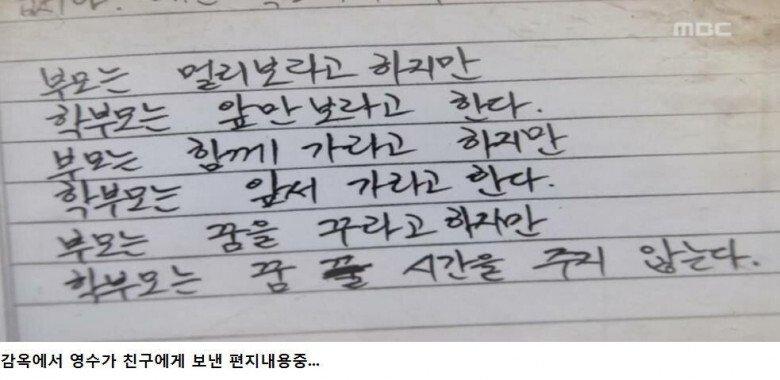 MBC
부모는 멀리보라고 하지만
학부모는 앞만 보라고 한다.
부모는 함께 가라고 하지만
학부모는 앞서 가라고 한다.
부모는 꿈을 꾸라고 하지만
학부모는 꿈 꿀 시간을 주지 않는다.
감옥에서 영수가 친구에게 보낸 편지내용중...